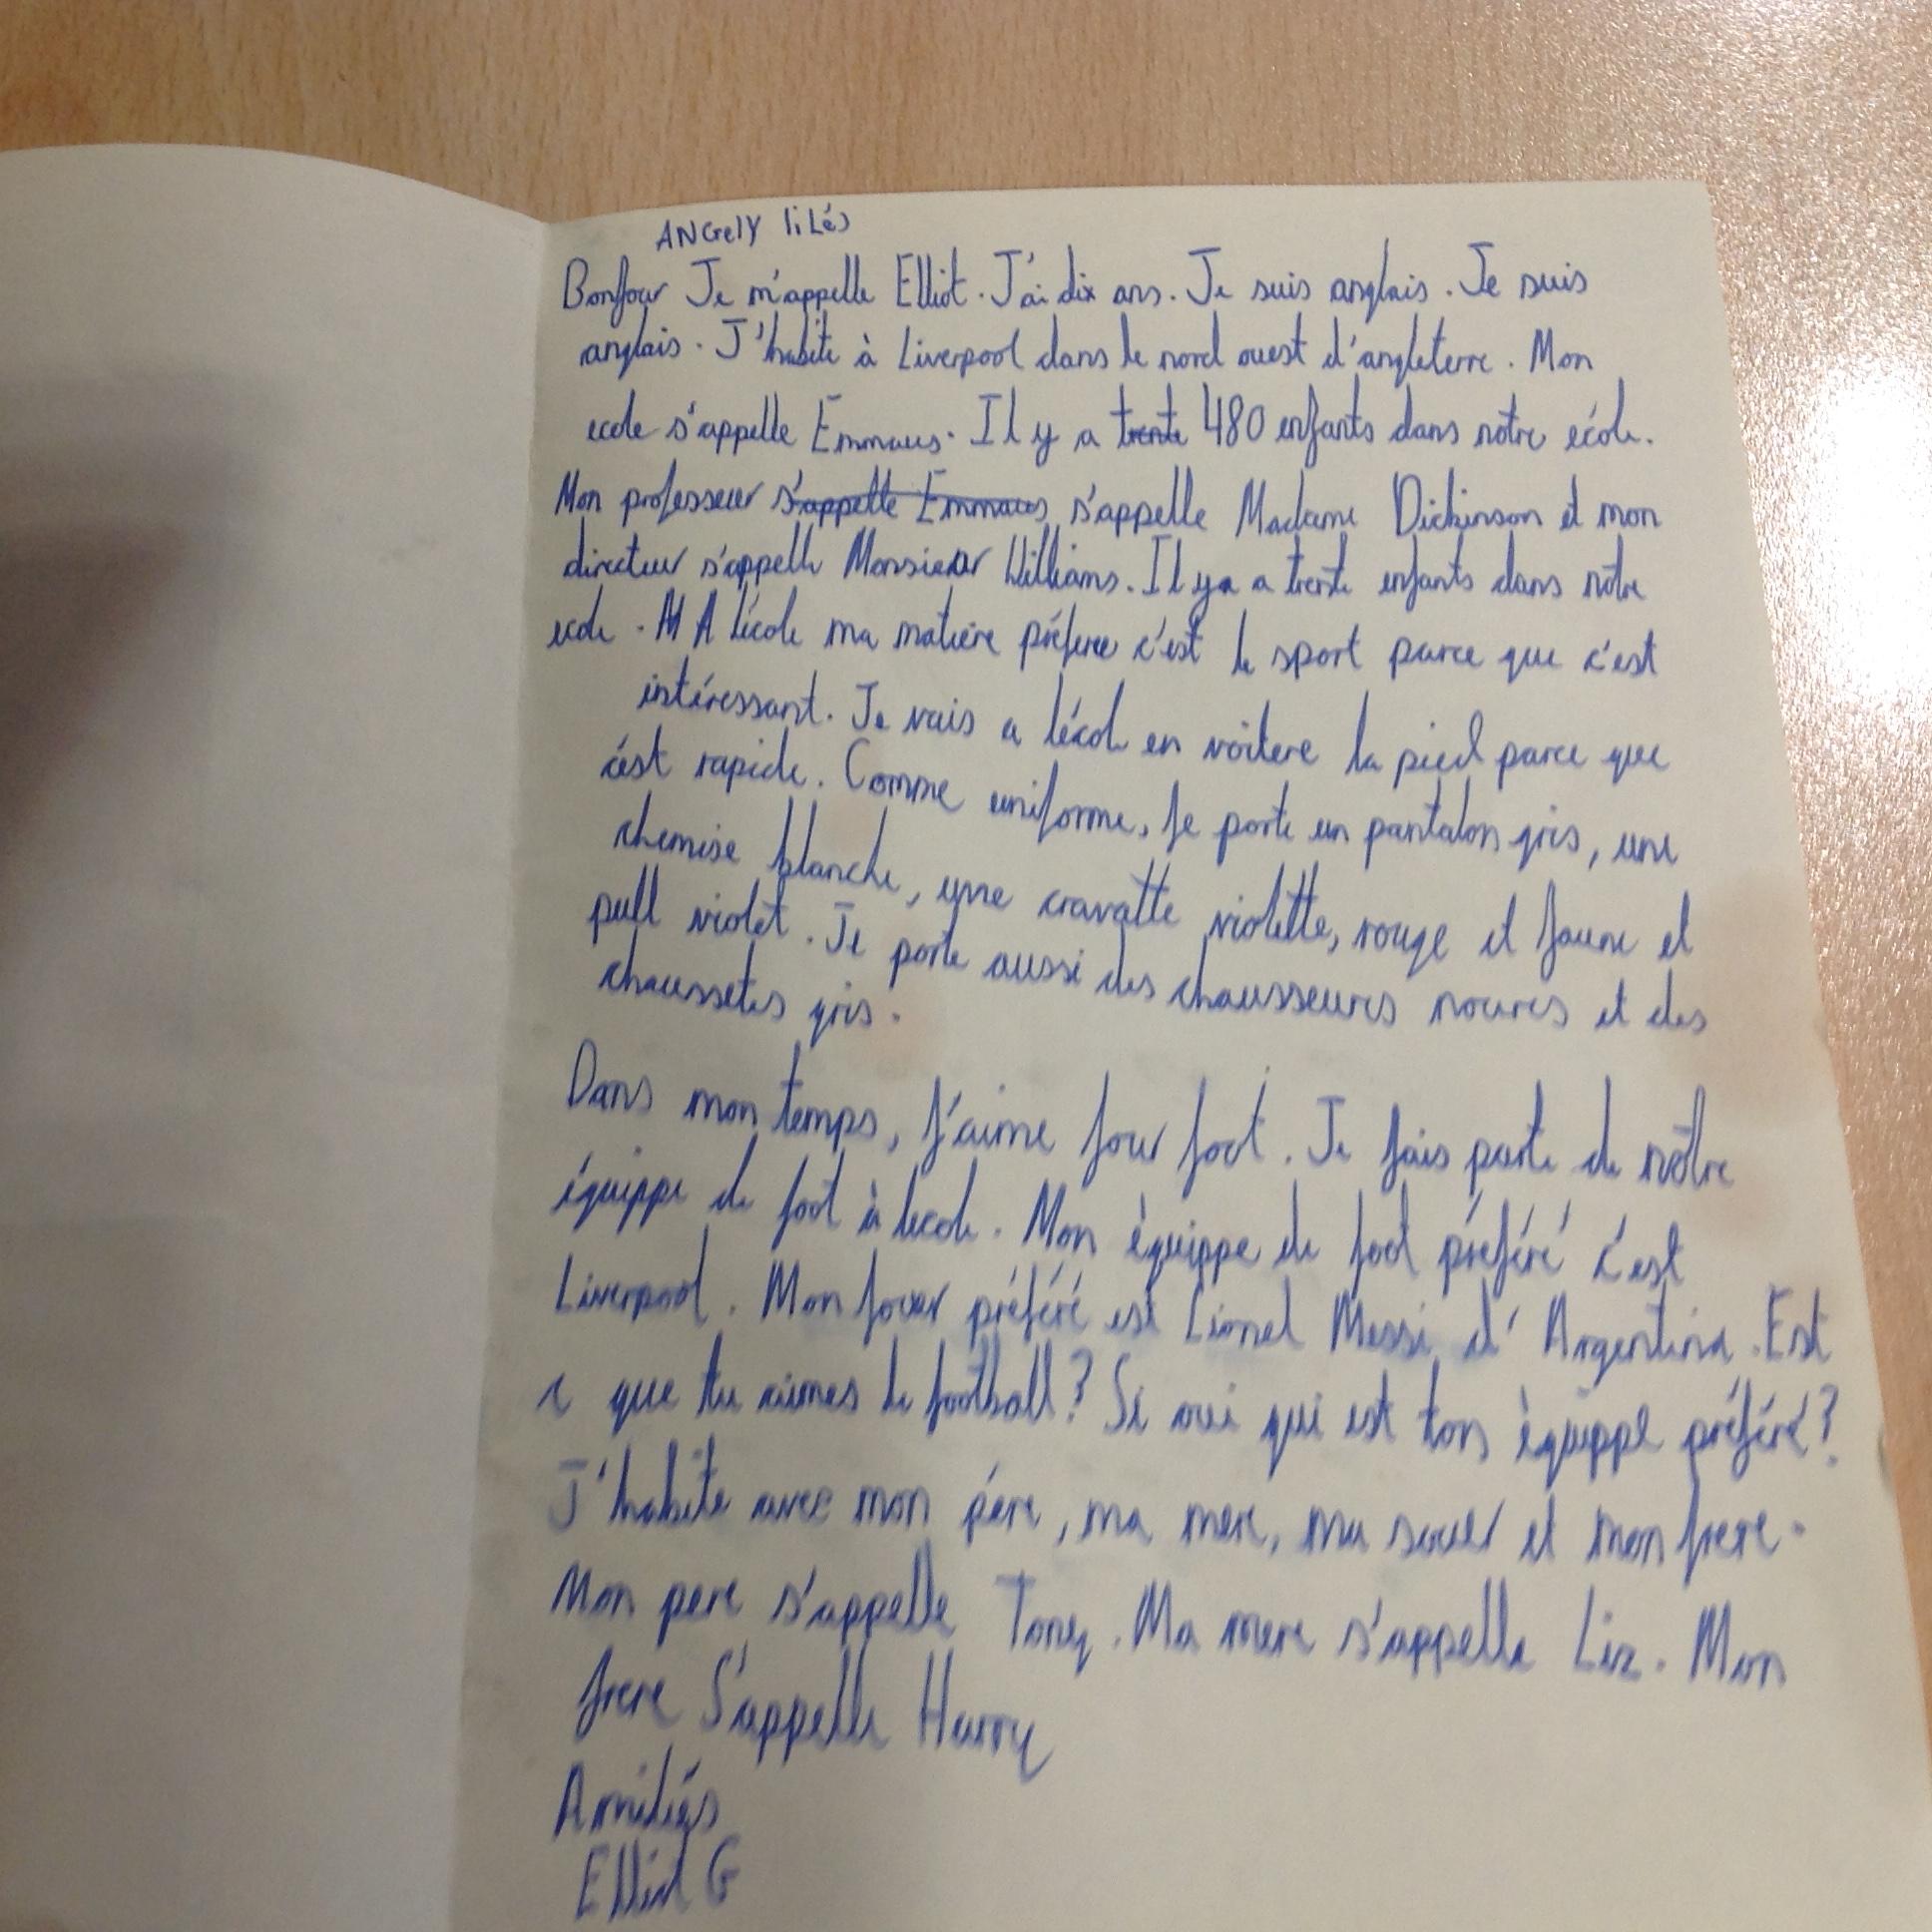 ANGelY liLés
Bonjour Je m'appelle Elliot. J'ai dix ans. Je suis anglais. Je suis
anglais. J'habite à Liverpool dans le nord ouest d'angleterre. Mon
ecole s'appelle Emmaus. Il y a trente 480 enfants dans notre école.
Mon professeur s'appelle Emmaus s'appelle Madame Dickinson et mon
directeur s'appelle Monsieur Williams. Il ya a trente enfants dans notre
ecole. M A l'école ma matière préferee c'est le sport parce que c'est
intéressant. Je vais a lécole en voiture la pied parce que
c'est rapide. Comme uniforme, je porte un pantalon gris, une
chemise blanche, une cravatte violette, rouge et jaune et
pull violet. Je porte aussi des chausseures noures et des
chaussetes gris.
Dans mon temps, j'aime jour foot. Je fais parte de nôtre
équippe de foot à lecole. Mon èquippe de foot préféré c'est
Liverpool. Mon jouer préféré est Lionel Messi d'Argentina. Est
c que tu aimes le football? Si oui qui est ton èquippe préféré?
J'habite avec mon pére, ma mere, ma souer et mon frere.
Mon pere s'appelle Tony. Ma mere s'appelle Liz. Mon
frere S'appelle Harry
Amitiés
Elliot G